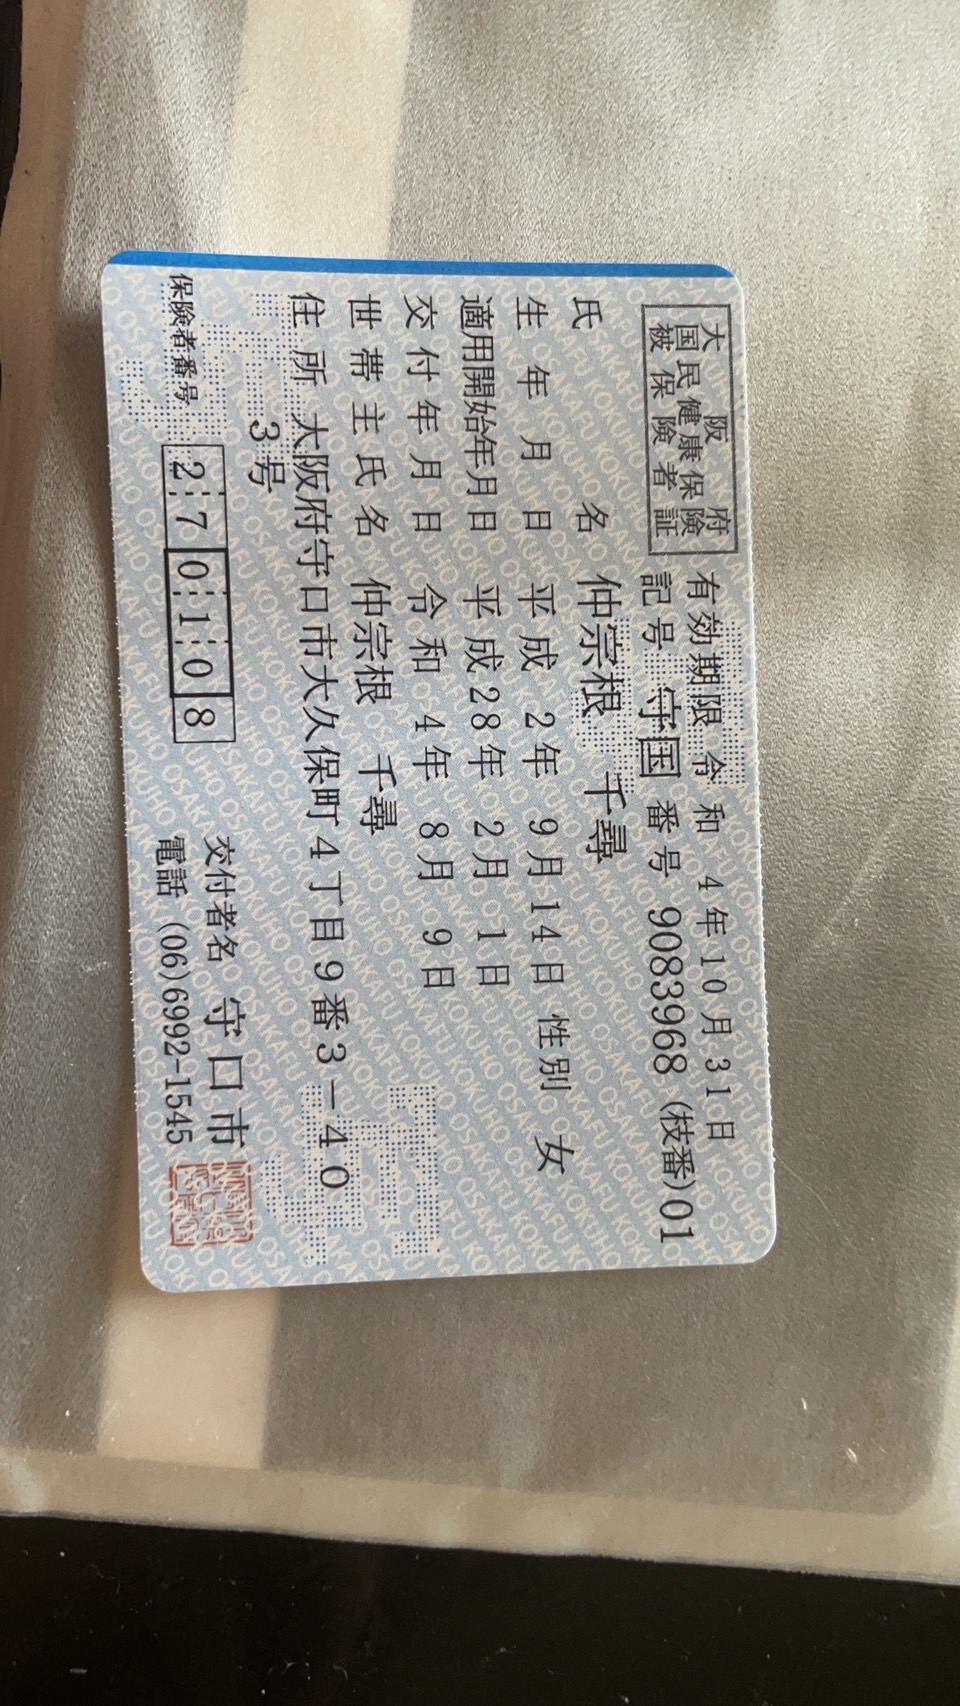 大阪府
国民健康保険
被保険者証
有効期限 令和 4年10月31日
記号 守国 番号 9083968 (枝番)01
氏名 仲宗根 千尋
生年月日 平成 2年 9月14日 性別 女
適用開始年月日 平成28年 2月 1日
交付年月日 令和 4年 8月 9日
世帯主氏名 仲宗根 千尋
住所 大阪府守口市大久保町4丁目9番3-40
3号
保険者番号 270108
交付者名 守口市
電話 (06)6992-1545